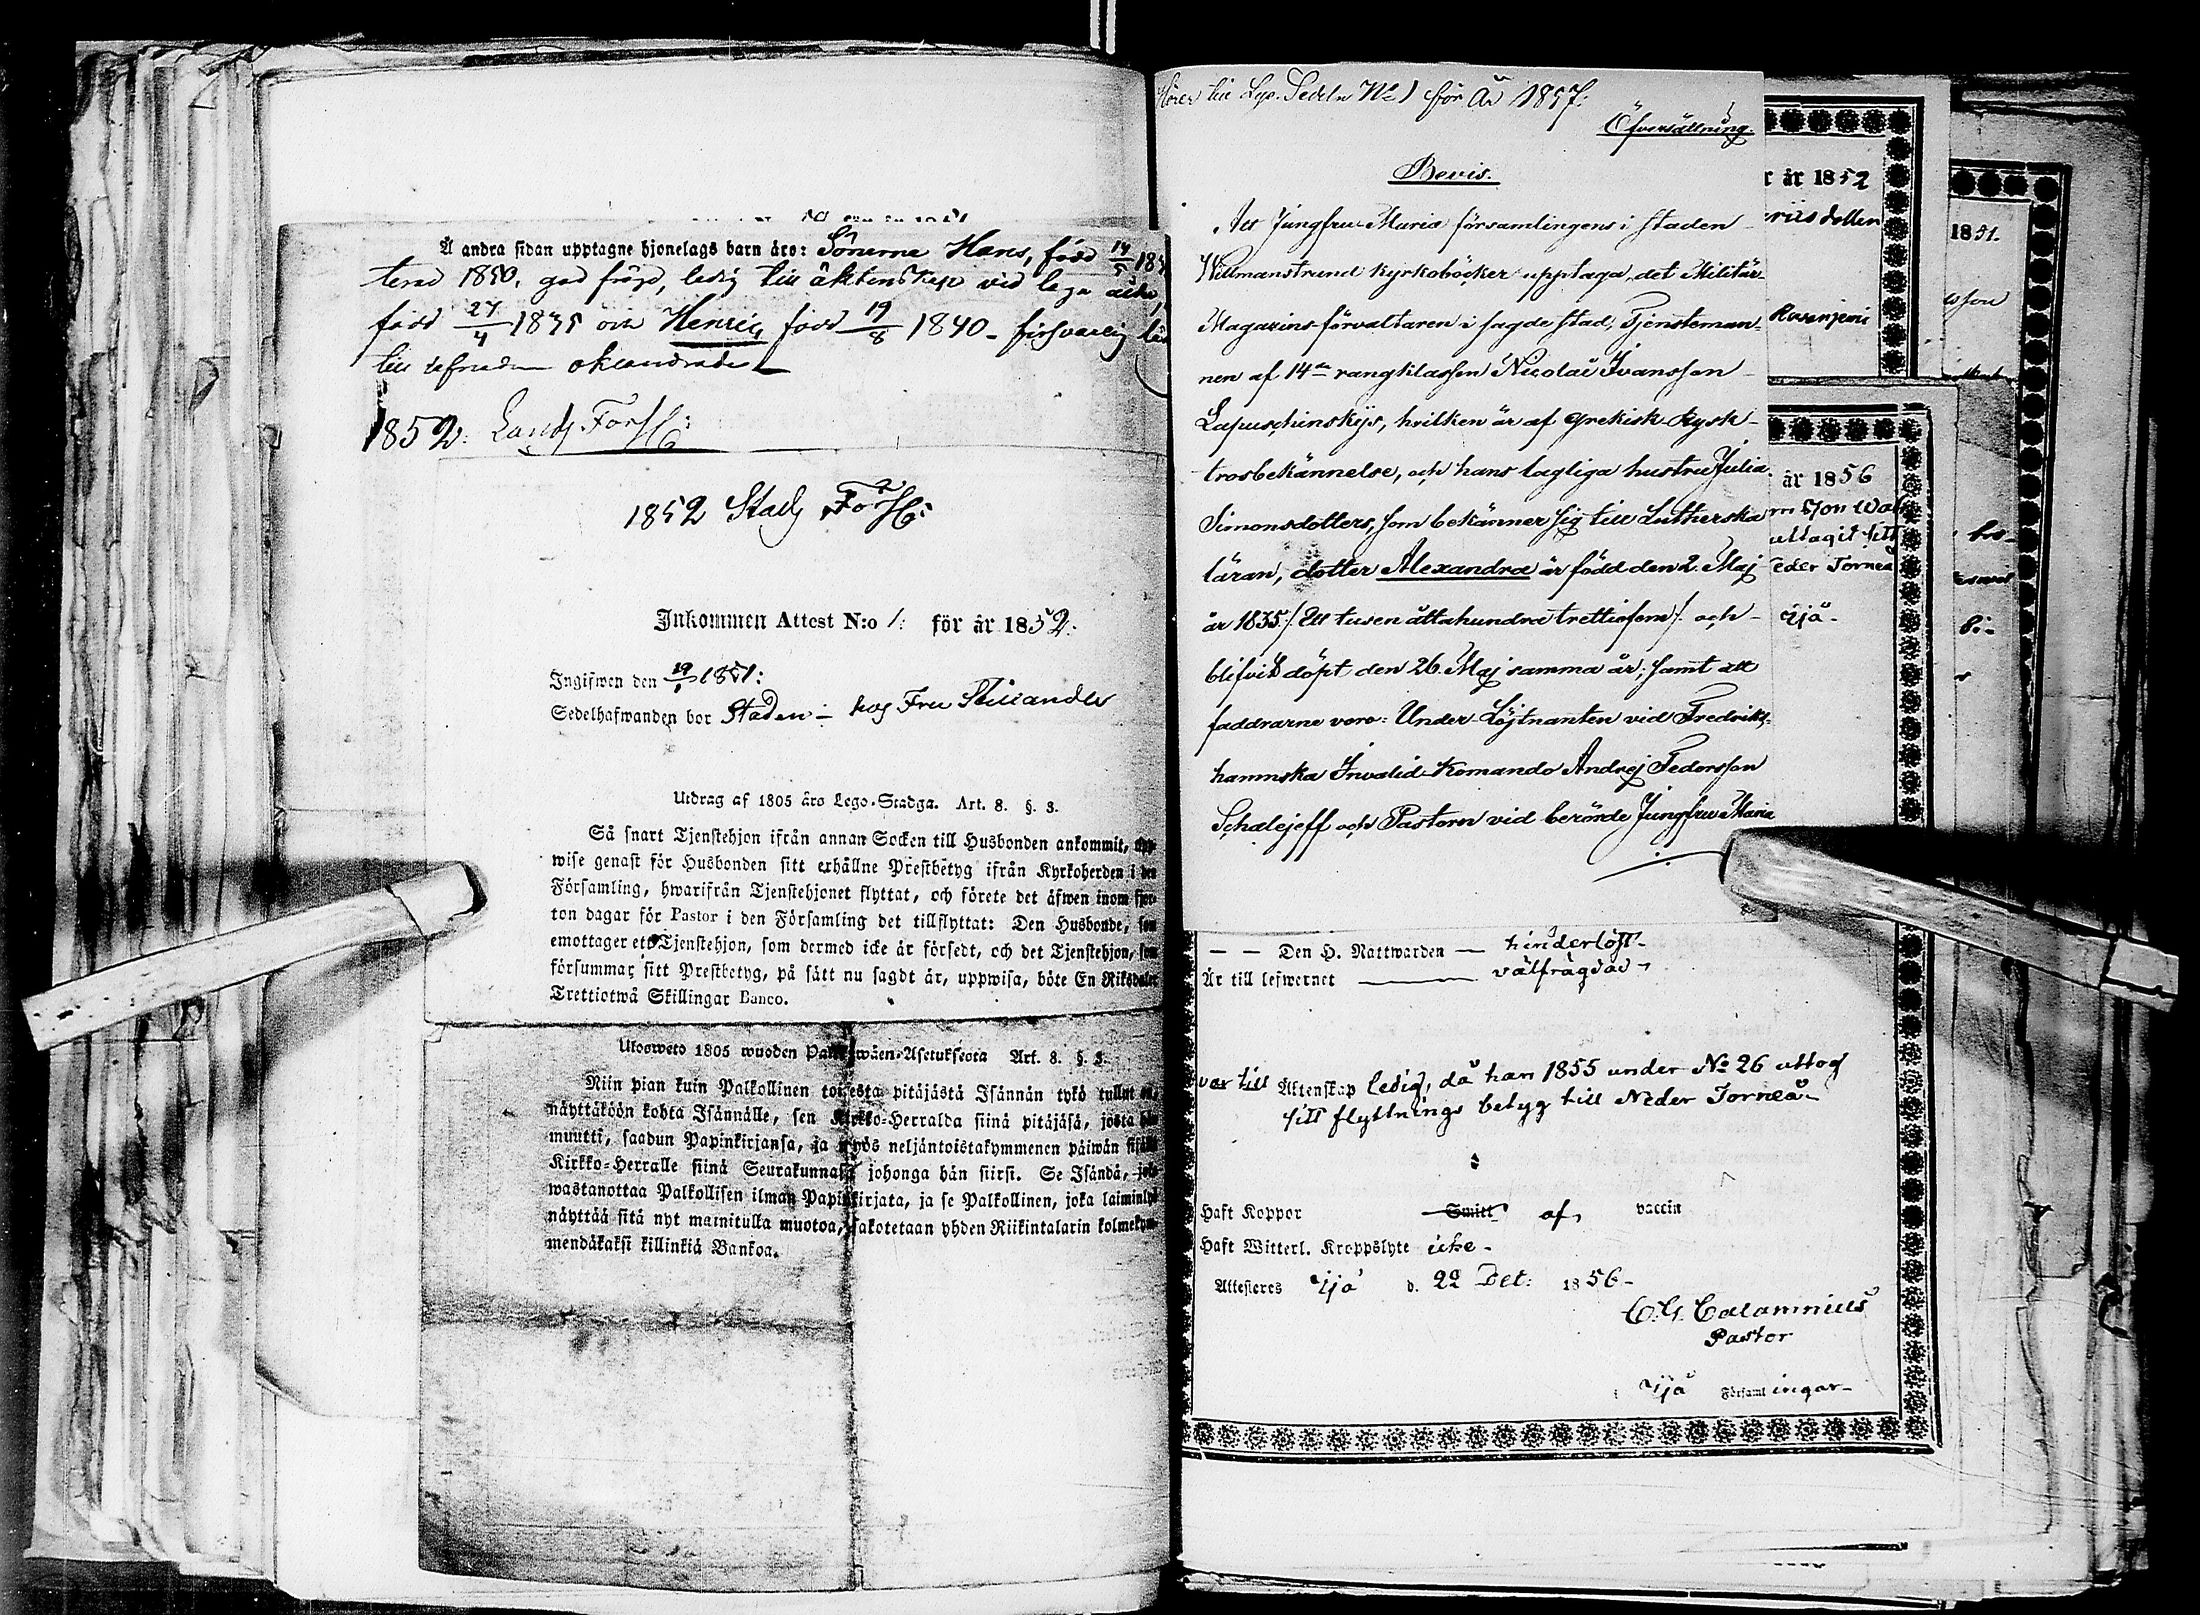 Å andra sidan upptagne hjonelags barn äro: Sönerne Hans, född 14/5 18
terad 1850, god frägd, ledig till äktenskap vid laga
född 27/4 1835 och Henric, född 19/8 1840 - försvarlig
till lefnaden oklandrade
1852. Lands Förs:
1852 Stads Förs:
Inkommen Attest N:o 1. för år 1852.
Ingifwen den 19/1 1851:
Sedelhafwanden bor Staden - hos Fru
Utdrag af 1805 års Lego-Stadga. Art. 8. §. 3.
Så snart Tjenstehjon ifrån annan Socken till Husbonden ankommit, upp-
wise genast för Husbonden sitt erhållne Prestbetyg ifrån Kyrkoherden i den
Församling, hwarifrån Tjenstehjonet flyttat, och förete det äfwen inom fjor-
ton dagar för Pastor i den Församling det tillflyttat: Den Husbonde, som
emottager ett Tjenstehjon, som dermed icke är försedt, och det Tjenstehjon, som
försummar sitt Prestbetyg, på sätt nu sagdt är, uppwisa, böte En Riksdaler
Trettiotwå Skillingar Banco.
Ulosweto 1805 wuoden Palkkawäen-Asetuksesta Art. 8. §. 3.
Niin pian kuin Palkollinen toisesta pitäjästä Isännän tykö tullut on,
näyttäköön kohta Isännälle, sen Kirkko-Herralda siinä pitäjäsä, josta hän
muutti, saadun Papinkirjansa, ja myös neljäntoistakymmenen päiwän sisällä
Kirkko-Herralle siinä Seurakunnasa johonga hän siirsi. Se Isändä, joka
wastanottaa Palkollisen ilman Papinkirjata, ja se Palkollinen, joka laiminlyö
näyttää sitä nyt mainitulla muotoa, sakotetaan yhden Riikintalarin kolmekym-
mendäkaksi killinkiä Bankoa.
hörer till Lys. Sedeln No 1 för År 1857:
Öfversättning.
Bevis.
Att Jungfru Maria församlingens i staden
Willmanstrand kyrkoböcker upptaga, det Militär-
Magazins-förvaltaren i sagde stad, Tjensteman-
nen af 14de rangklassen Nicolai Ivansson
Lapuschinskijs, hvilken är af Grekisk-Rysk-
trosbekännelse, och hans lagliga hustru Julia
Simonsdotters, som bekänner sig till Lutherska
läran, dotter Alexandra är född den 2. Maj
år 1835 /: Ett tusen åttahundra trettiofem :/ och
blifvit döpt den 26. Maj samma år; samt att
faddrarne voro: Under-Löjtnanten vid Fredriks-
hamnska Invalid-Komando Andrej Fedorsson
Schalejeff och Pastorn vid berörde Jungfru Maria
— — Den H. Nattwarden — hinderlöst -
Är till lefwernet — välfrägdad -
var till Äktenskap ledig, då han 1855 under No 26 uttog
sitt flyttnings betyg till Neder Torneå -
Haft Koppor Smitt af vaccin
Haft Witterl. Kroppslyte icke -
Attesteras Ijo d. 22 Oct: 1856 -
C. G. Calamnius
Pastor
Ijo Församl ingar -
r år 1852
1851.
år 1856
uttagit sitt
eder Torneå
Ijå -